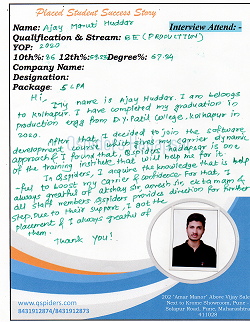 Placed Student Success Story
Name: Ajay Maruti Huddar Interview Attend: -
Qualification & Stream: BE (PRODUCTION)
YOP: 2020
10th%: 86 12th% Degree%: 67.84
Company Name:
Designation:
Package: 5 LPA
Hi,
My name is Ajay Huddar. I am belongs
to kolhapur. I have completed my graduation in
production engg from D.Y. Patil College, kolhapur in
2020.
After that, I decided to join the software
development course which gives my carrier dynamic
approach & I found that, Qspiders hadapsar is one
of the training institute that will help me for it
In Qspiders, I acquire the knowledge that is help
-ful to boost my carrier & confidence For that, I
always greatful of akshay sir, amresh sir, ektamam &
all staff members Qspiders provides direction for further
step. Due to their support, I got the
placement & I always greatful of
them
Thank you!
www.qspiders.com
8431912874/8431912873
202 "Amar Manor" Above Vijay Sales
Next to Kromе Showroom, Pune
Solapur Road, Pune, Maharashtra
411028